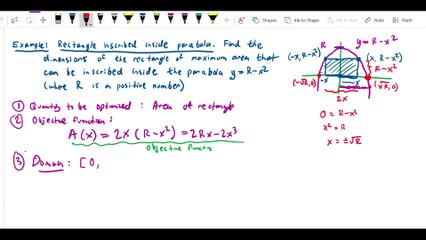 Example: Rectangle Inscribed inside parabola. Find the
dimensions of the rectangle of maximum area that
can be inscribed inside the parabola y = R-x²
(where R is a positive number)
① Quantity to be optimized: Area of rectangle
② Objective function:
A(x) = 2x (R-x²) = 2Rx-2x³
Objective function
③ Domain: [0,
R
y = R-x²
(-x, R-x²)
(x, R-x²)
R-x²
(-√R, 0)
-x
x
(√R, 0)
2x
0 = R-x²
x² = R
x = ±√R